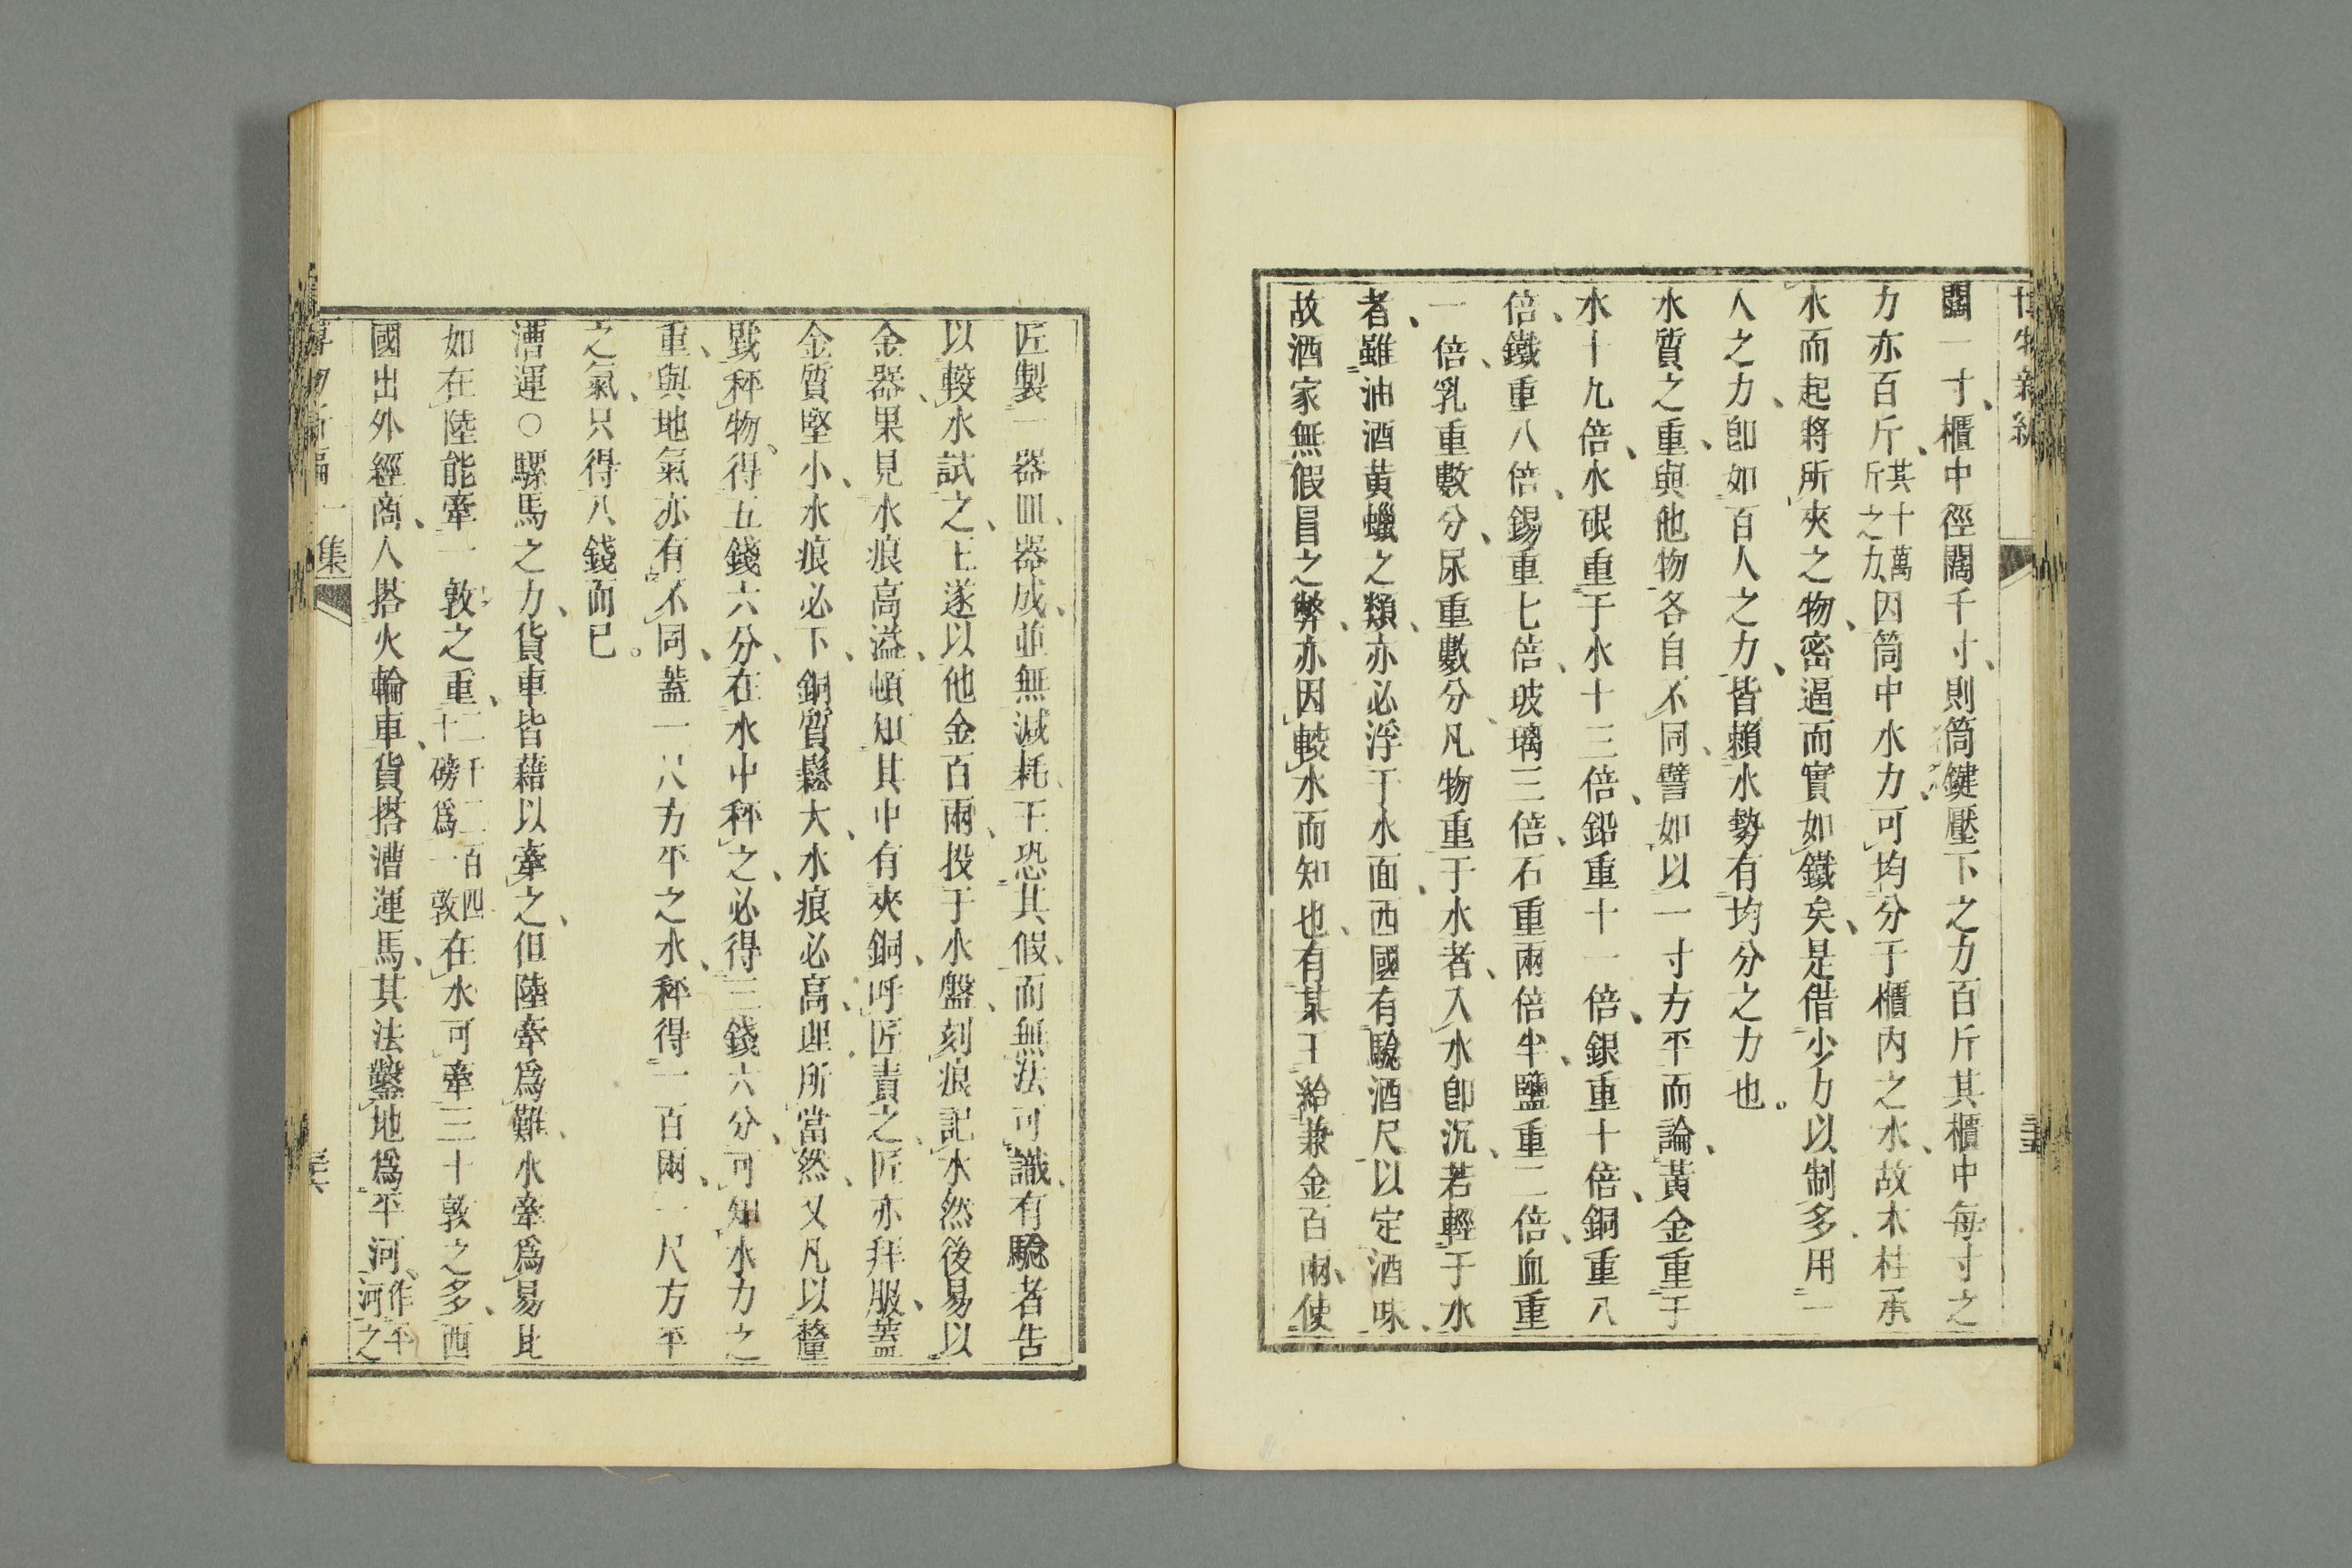 闊一寸、櫃中徑闊千寸、則筒鍵壓下之力百斤其櫃中每寸之
力亦百斤、其十萬斤之力、因筒中水力、可均分于櫃内之水、故木柱承
水而起將所夾之物、密逼而實如鐵矣、是借少力以制多、用一
人之力、卽如百人之力、皆賴水勢有均分之力也。
水質之重、與他物各自不同、譬如以一寸方平而論、黃金重于
水十九倍、水硍重于水十三倍、鉛重十一倍、銀重十倍、銅重八
倍、鐵重八倍、錫重七倍、玻璃三倍、石重兩倍半、鹽重二倍、血重
一倍、乳重數分、尿重數分、凡物重于水者、入水卽沉、若輕于水
者、雖油酒黃蠟之類、亦必浮于水面、西國有驗酒尺以定酒味、
故酒家無假冒之弊、亦因較水而知也、有某王給兼金百兩、使
匠製一器皿、器成、並無減耗、王恐其假、而無法可識、有驗者告
以較水試之、王遂以他金百兩、投于水盤、刻痕記水然後易以
金器、果見水痕高溢、頓知其中有夾銅、呼匠責之、匠亦拜服、蓋
金質堅小、水痕必下、銅質鬆大、水痕必高、理所當然、又凡以釐
戥秤物、得五錢六分、在水中秤之、必得三錢六分、可知水力之
重、與地氣亦有不同、蓋一尺方平之水、秤得一百兩、一尺方平
之氣、只得八錢而已。
漕運○騾馬之力、貨車皆藉以牽之、但陸牽爲難、水牽爲易比
如在陸能牽一敦之重、二千二百四十磅爲一敦在水可牽三十敦之多、西
國出外經商、人搭火輪車、貨搭漕運馬、其法鑿地爲平河、作平河之